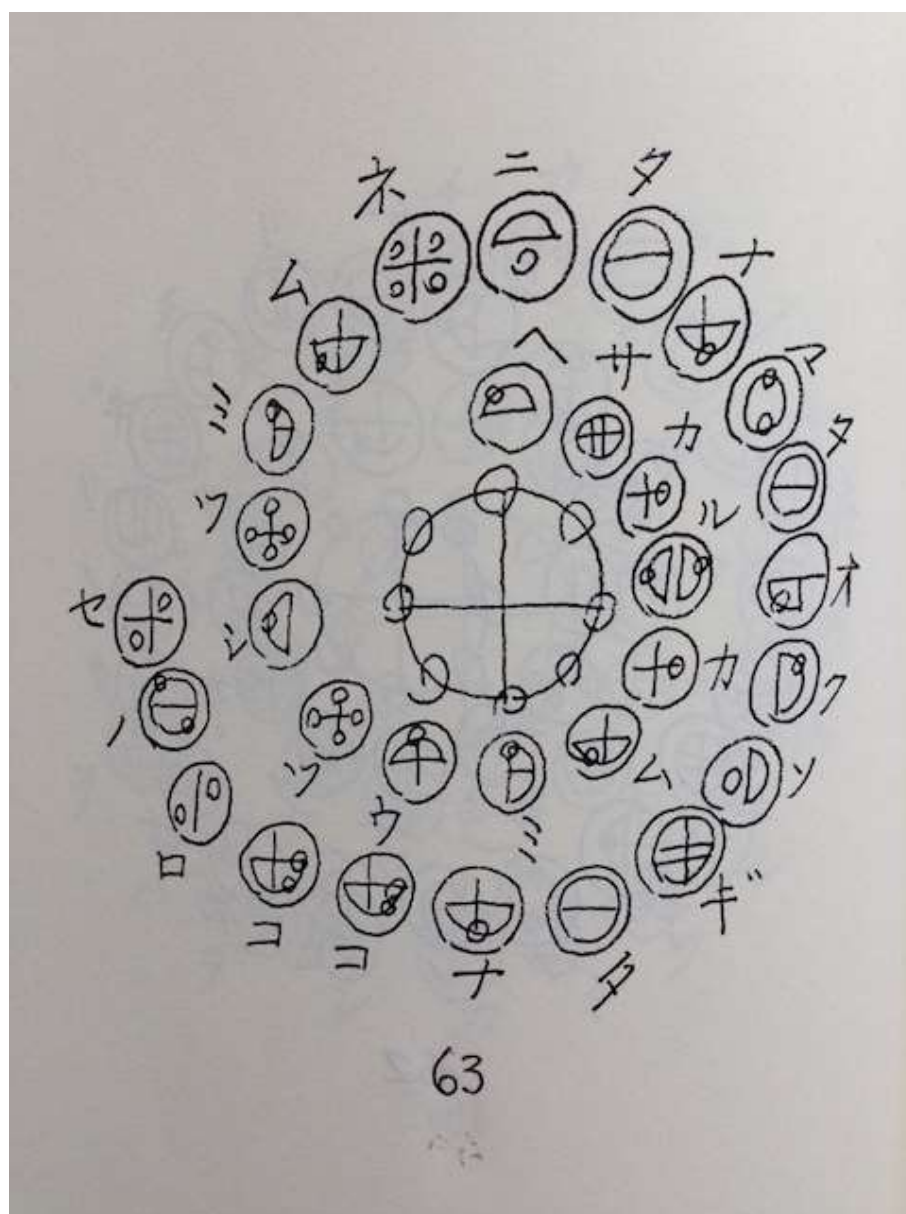 ヘサカルカムミウツシツミムネニタナマタオクソギタナココロノセ
63